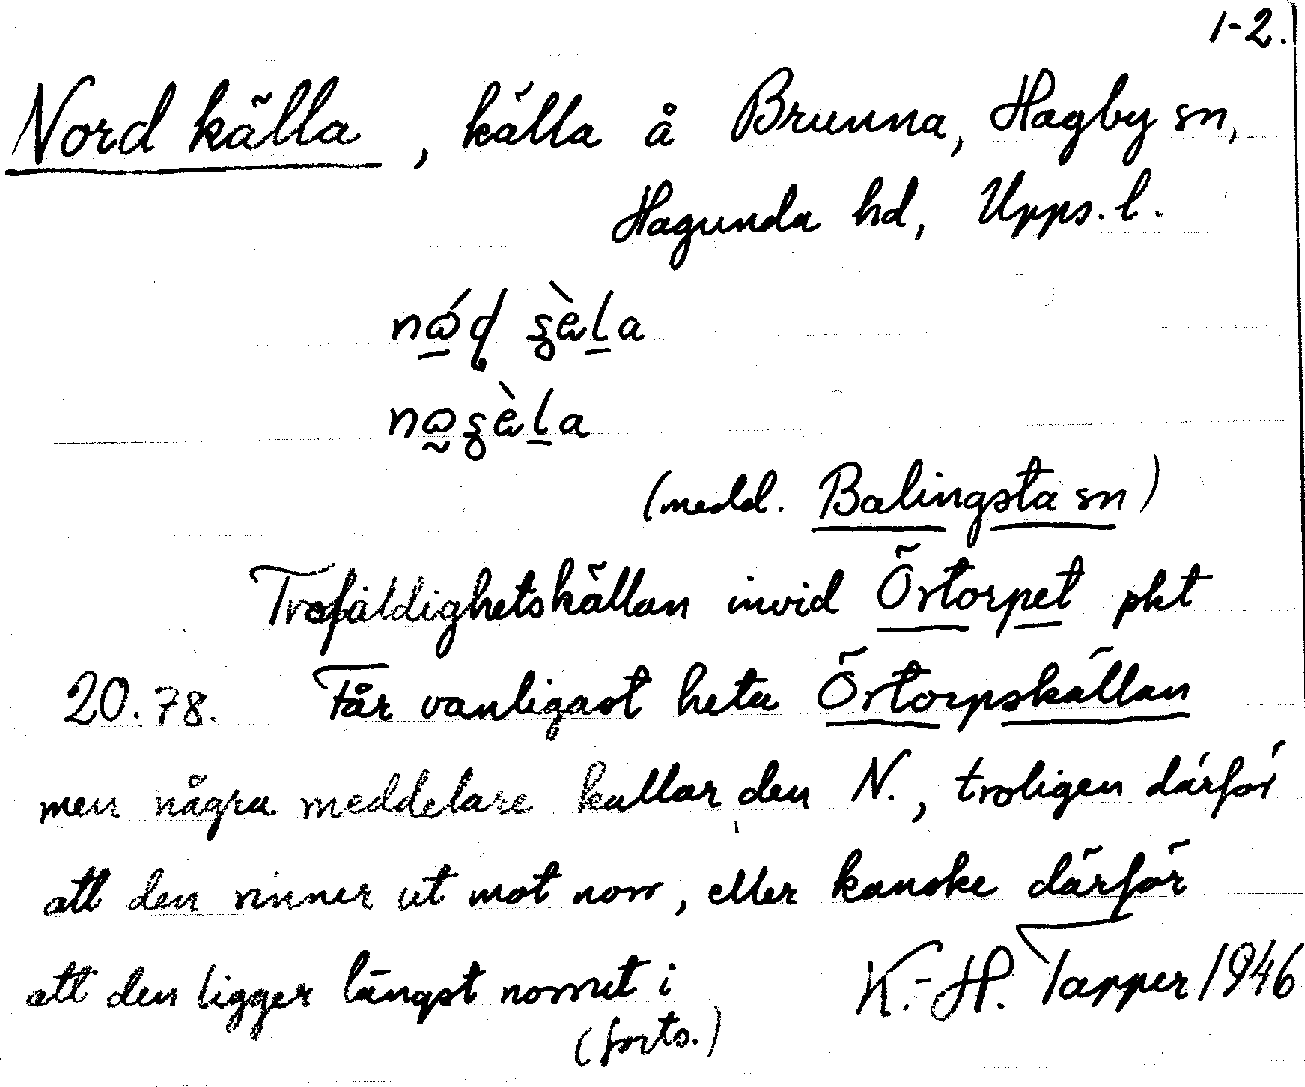 1-2.
Nordkälla, källa å Brunna, Hagby sn,
Hagunda hd, Upps. l.
(medd. Balingsta sn)
Trefaldighetskällan invid Örtorpet pkt
20.78. Får vanligast heta Örtorpskällan
men några meddelare kallar den N., troligen därför
att den rinner ut mot norr, eller kanske därför
att den ligger längst norrut i
K.-H. Tapper 1946
(forts.)